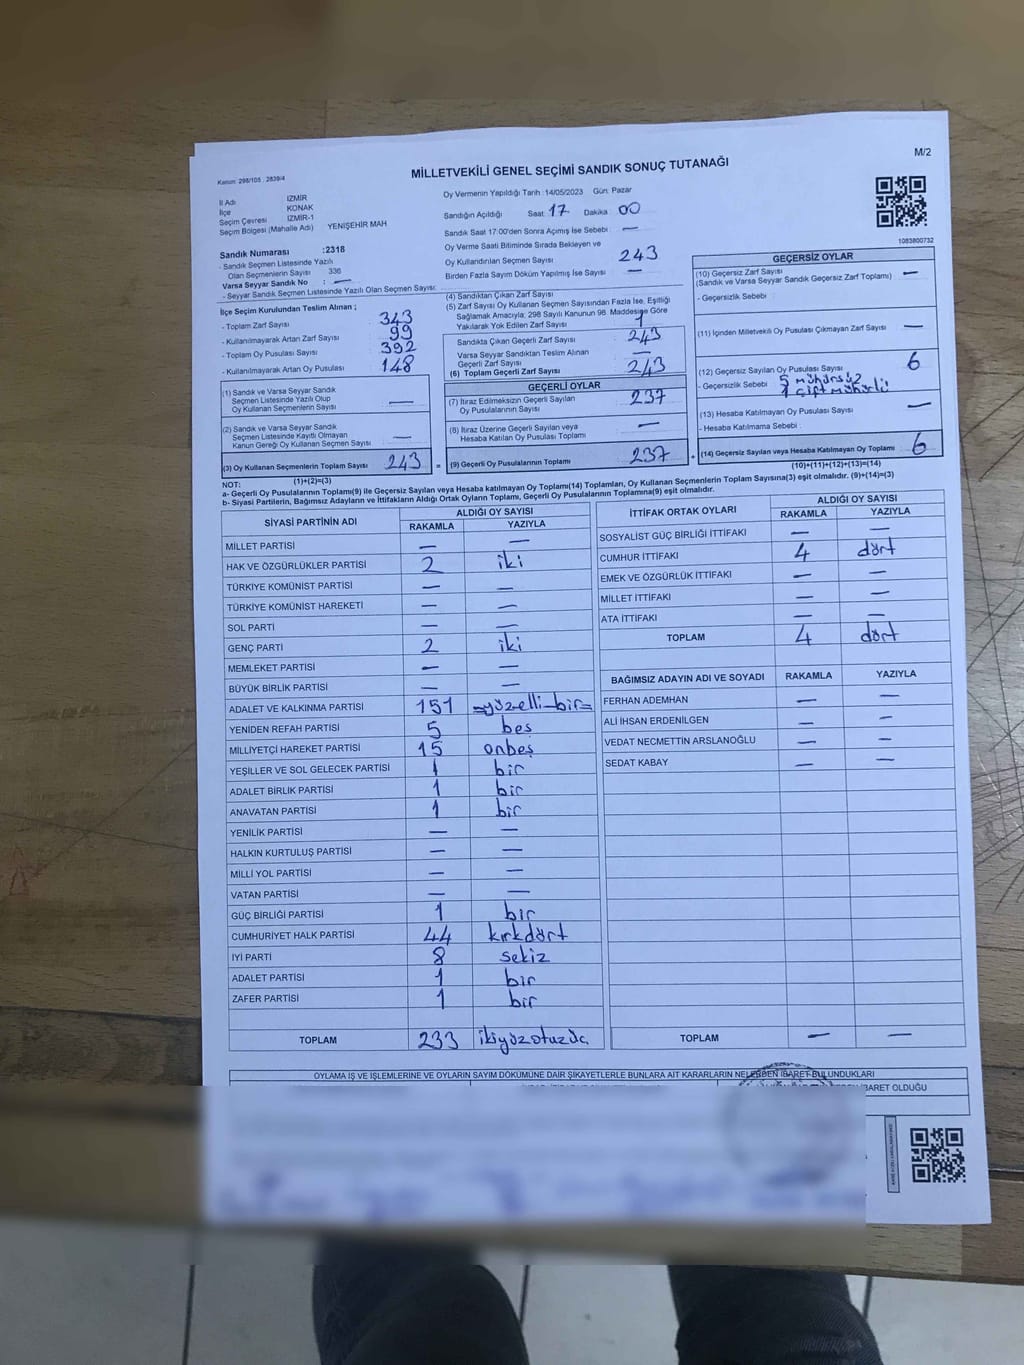 M/2
Kanun: 298/105 : 2839/4
MİLLETVEKİLİ GENEL SEÇİMİ SANDIK SONUÇ TUTANAĞI
İl Adı İZMİR
İlçe KONAK
Seçim Çevresi İZMİR-1
Seçim Bölgesi (Mahalle Adı) YENİŞEHİR MAH
Oy Vermenin Yapıldığı Tarih :14/05/2023 Gün: Pazar
Sandığın Açıldığı Saat: 17 Dakika 00
Sandık Saat 17:00'den Sonra Açılmış İse Sebebi : —
Oy Verme Saati Bitiminde Sırada Bekleyen ve
Oy Kullandırılan Seçmen Sayısı 243
Birden Fazla Sayım Döküm Yapılmış İse Sayısı —
1083800732
Sandık Numarası :2318
- Sandık Seçmen Listesinde Yazılı
Olan Seçmenlerin Sayısı 336
Varsa Seyyar Sandık No : —
- Seyyar Sandık Seçmen Listesinde Yazılı Olan Seçmen Sayısı:
İlçe Seçim Kurulundan Teslim Alınan ;
- Toplam Zarf Sayısı 343
- Kullanılmayarak Artan Zarf Sayısı 99
- Toplam Oy Pusulası Sayısı 392
- Kullanılmayarak Artan Oy Pusulası 148
(1) Sandık ve Varsa Seyyar Sandık
Seçmen Listesinde Yazılı Olup
Oy Kullanan Seçmenlerin Sayısı —
(2) Sandık ve Varsa Seyyar Sandık
Seçmen Listesinde Kayıtlı Olmayan
Kanun Gereği Oy Kullanan Seçmen Sayısı —
(3) Oy Kullanan Seçmenlerin Toplam Sayısı 243
(1)+(2)=(3)
(4) Sandıktan Çıkan Zarf Sayısı
(5) Zarf Sayısı Oy Kullanan Seçmen Sayısından Fazla İse, Eşitliği
Sağlamak Amacıyla; 298 Sayılı Kanunun 98. Maddesine Göre
Yakılarak Yok Edilen Zarf Sayısı 1
Sandıkta Çıkan Geçerli Zarf Sayısı 243
Varsa Seyyar Sandıktan Teslim Alınan
Geçerli Zarf Sayısı —
(6) Toplam Geçerli Zarf Sayısı 243
GEÇERLİ OYLAR
(7) İtiraz Edilmeksizin Geçerli Sayılan
Oy Pusulalarının Sayısı 237
(8) İtiraz Üzerine Geçerli Sayılan veya
Hesaba Katılan Oy Pusulası Toplamı —
= (9) Geçerli Oy Pusulalarının Toplamı 237
GEÇERSİZ OYLAR
(10) Geçersiz Zarf Sayısı
(Sandık ve Varsa Seyyar Sandık Geçersiz Zarf Toplamı) —
- Geçersizlik Sebebi :
(11) İçinden Milletvekili Oy Pusulası Çıkmayan Zarf Sayısı —
(12) Geçersiz Sayılan Oy Pusulası Sayısı 6
- Geçersizlik Sebebi : 5 mühürsüz
1 çift mühürlü
(13) Hesaba Katılmayan Oy Pusulası Sayısı —
- Hesaba Katılmama Sebebi :
+ (14) Geçersiz Sayılan veya Hesaba Katılmayan Oy Toplamı 6
(10)+(11)+(12)+(13)=(14)
NOT:
a- Geçerli Oy Pusulalarının Toplamı(9) ile Geçersiz Sayılan veya Hesaba katılmayan Oy Toplamı(14) Toplamları, Oy Kullanan Seçmenlerin Toplam Sayısına(3) eşit olmalıdır. (9)+(14)=(3)
b- Siyasi Partilerin, Bağımsız Adayların ve İttifakların Aldığı Ortak Oyların Toplamı, Geçerli Oy Pusulalarının Toplamına(9) eşit olmalıdır.
SİYASİ PARTİNİN ADI ALDIĞI OY SAYISI
RAKAMLA YAZIYLA
MİLLET PARTİSİ — —
HAK VE ÖZGÜRLÜKLER PARTİSİ 2 iki
TÜRKİYE KOMÜNİST PARTİSİ — —
TÜRKİYE KOMÜNİST HAREKETİ — —
SOL PARTİ — —
GENÇ PARTİ 2 iki
MEMLEKET PARTİSİ — —
BÜYÜK BİRLİK PARTİSİ — —
ADALET VE KALKINMA PARTİSİ 151 =yüzelli-bir=
YENİDEN REFAH PARTİSİ 5 beş
MİLLİYETÇİ HAREKET PARTİSİ 15 onbeş
YEŞİLLER VE SOL GELECEK PARTİSİ 1 bir
ADALET BİRLİK PARTİSİ 1 bir
ANAVATAN PARTİSİ 1 bir
YENİLİK PARTİSİ — —
HALKIN KURTULUŞ PARTİSİ — —
MİLLİ YOL PARTİSİ — —
VATAN PARTİSİ — —
GÜÇ BİRLİĞİ PARTİSİ 1 bir
CUMHURİYET HALK PARTİSİ 44 kırkdört
İYİ PARTİ 8 sekiz
ADALET PARTİSİ 1 bir
ZAFER PARTİSİ 1 bir
TOPLAM 233 ikiyüzotuzüç
İTTİFAK ORTAK OYLARI ALDIĞI OY SAYISI
RAKAMLA YAZIYLA
SOSYALİST GÜÇ BİRLİĞİ İTTİFAKI — —
CUMHUR İTTİFAKI 4 dört
EMEK VE ÖZGÜRLÜK İTTİFAKI — —
MİLLET İTTİFAKI — —
ATA İTTİFAKI — —
TOPLAM 4 dört
BAĞIMSIZ ADAYIN ADI VE SOYADI RAKAMLA YAZIYLA
FERHAN ADEMHAN — —
ALİ İHSAN ERDENİLGEN — —
VEDAT NECMETTİN ARSLANOĞLU — —
SEDAT KABAY — —
TOPLAM — —
OYLAMA İŞ VE İŞLEMLERİNE VE OYLARIN SAYIM DÖKÜMÜNE DAİR ŞİKAYETLERLE BUNLARA AİT KARARLARIN NELERDEN İBARET BULUNDUKLARI
İBARET OLDUĞU